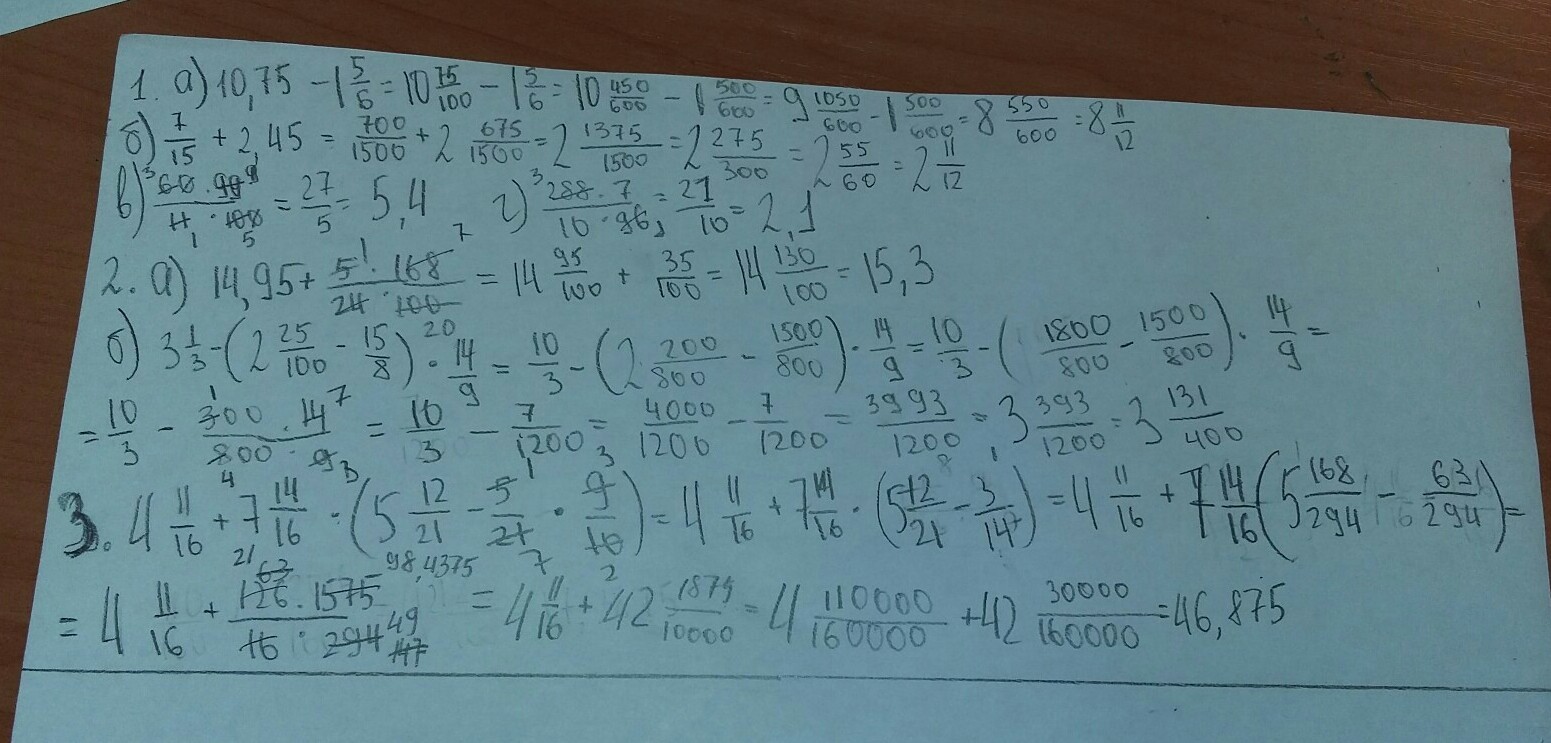 1. а) 10,75 - 1 5/6 = 10 75/100 - 1 5/6 = 10 450/600 - 1 500/600 = 9 1050/600 - 1 500/600 = 8 550/600 = 8 11/12
б) 7/15 + 2,45 = 700/1500 + 2 675/1500 = 2 1375/1500 = 2 275/300 = 2 55/60 = 2 11/12
в) 60 · 99 / 11 · 100 = 27/5 = 5,4 г) 288 · 7 / 10 · 96 = 21/10 = 2,1
2. а) 14,95 + 5 · 168 / 24 · 100 = 14 95/100 + 35/100 = 14 130/100 = 15,3
б) 3 1/3 - (2 25/100 - 15/8) · 14/9 = 10/3 - (2 200/800 - 1500/800) · 14/9 = 10/3 - (1800/800 - 1500/800) · 14/9 =
= 10/3 - 300 · 14 / 800 · 9 = 10/3 - 7/1200 = 4000/1200 - 7/1200 = 3993/1200 = 3 393/1200 = 3 131/400
3. 4 11/16 + 7 14/16 · (5 12/21 - 5/21 · 9/10) = 4 11/16 + 7 14/16 · (5 12/21 - 3/14) = 4 11/16 + 7 14/16 (5 168/294 - 63/294) =
= 4 11/16 + 126 · 1575 / 16 · 294 = 4 11/16 + 42 1875/10000 = 4 110000/160000 + 42 30000/160000 = 46,875